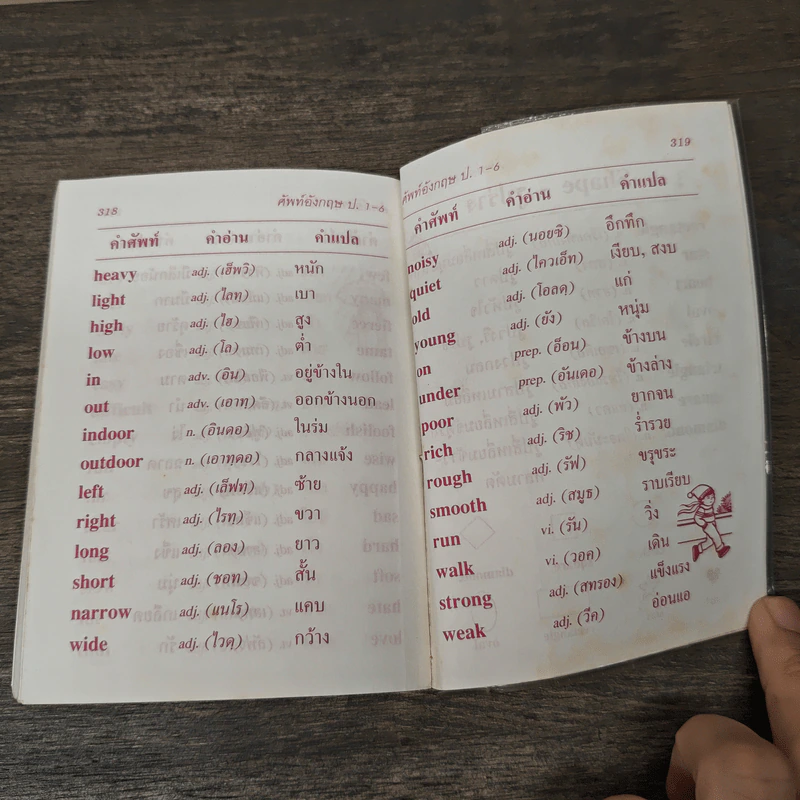 318 ศัพท์อังกฤษ ป. 1-6
คำศัพท์ คำอ่าน คำแปล
heavy adj. (เฮ็พวิ) หนัก
light adj. (ไลทฺ) เบา
high adj. (ไฮ) สูง
low adj. (โล) ต่ำ
in adv. (อิน) อยู่ข้างใน
out adv. (เอาทฺ) ออกข้างนอก
indoor n. (อินดอ) ในร่ม
outdoor n. (เอาทฺดอ) กลางแจ้ง
left adj. (เล็ฟทฺ) ซ้าย
right adj. (ไรทฺ) ขวา
long adj. (ลอง) ยาว
short adj. (ชอท) สั้น
narrow adj. (แนโร) แคบ
wide adj. (ไวดฺ) กว้าง
ศัพท์อังกฤษ ป. 1-6 319
คำศัพท์ คำอ่าน คำแปล
noisy adj. (นอยซิ) อึกทึก
quiet adj. (ไควเอ็ท) เงียบ, สงบ
old adj. (โอลดฺ) แก่
young adj. (ยัง) หนุ่ม
on prep. (อ็อน) ข้างบน
under prep. (อันเดอ) ข้างล่าง
poor adj. (พัว) ยากจน
rich adj. (ริช) ร่ำรวย
rough adj. (รัฟ) ขรุขระ
smooth adj. (สมูธ) ราบเรียบ
run vi. (รัน) วิ่ง
walk vi. (วอค) เดิน
strong adj. (สทรอง) แข็งแรง
weak adj. (วีค) อ่อนแอ